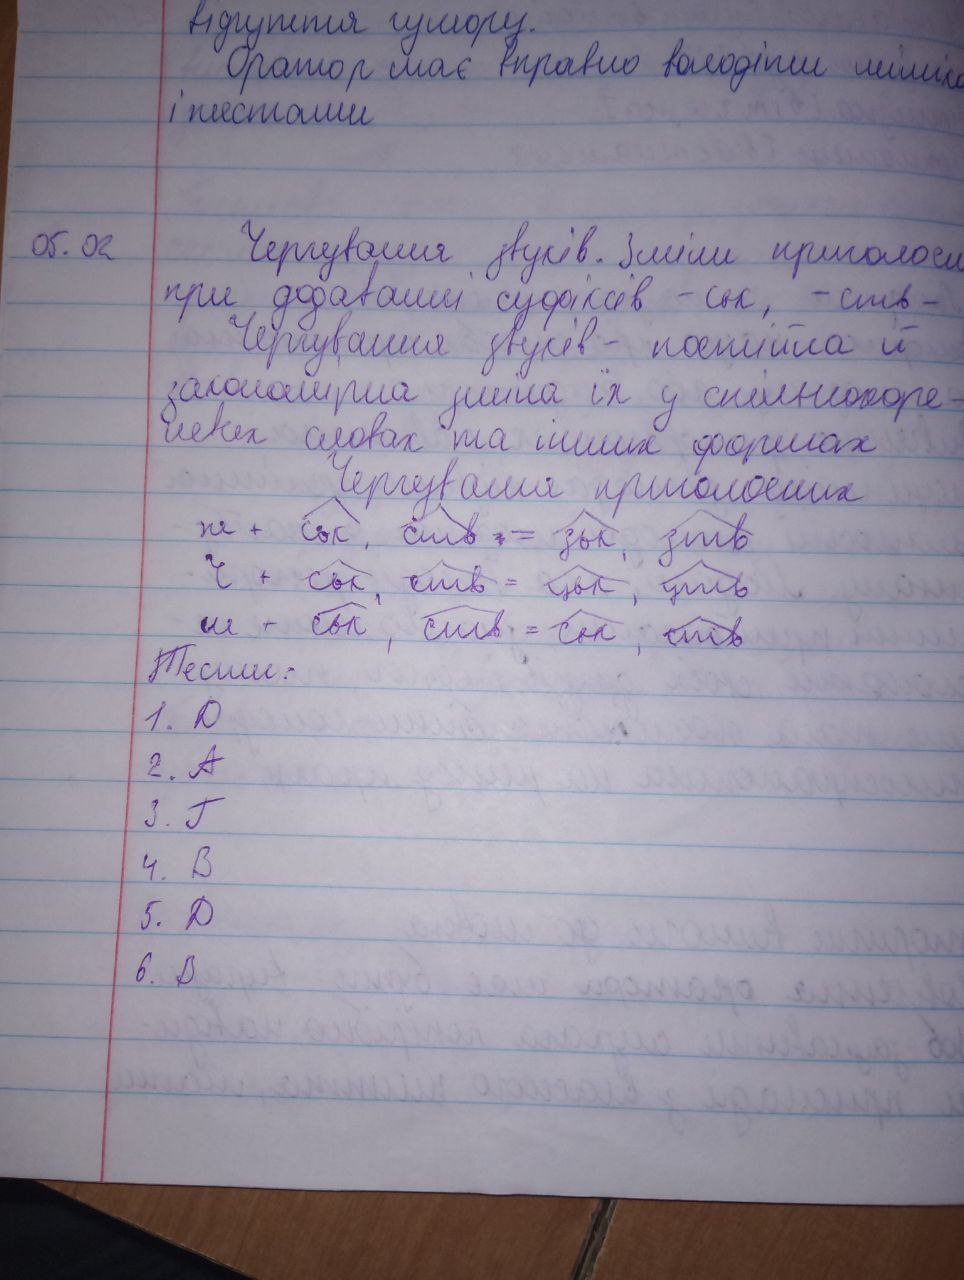 відчуття гумору.
Оратор має вправно володіти мімікою
і жестами
05.02 Чергування звуків. Зміни приголосн
при додаванні суфіксів -ськ, -ств-
Чергування звуків - постійна й
закономірна зміна їх у спільнокоре-
невих словах та інших формах
Чергування приголосних
ж + ськ, ств = зьк, зтв
Ч + ськ, ств = цьк, цтв
ш + ськ, ств = ськ, ств
Тести:
1. Д
2. А
3. Г
4. В
5. Д
6. В